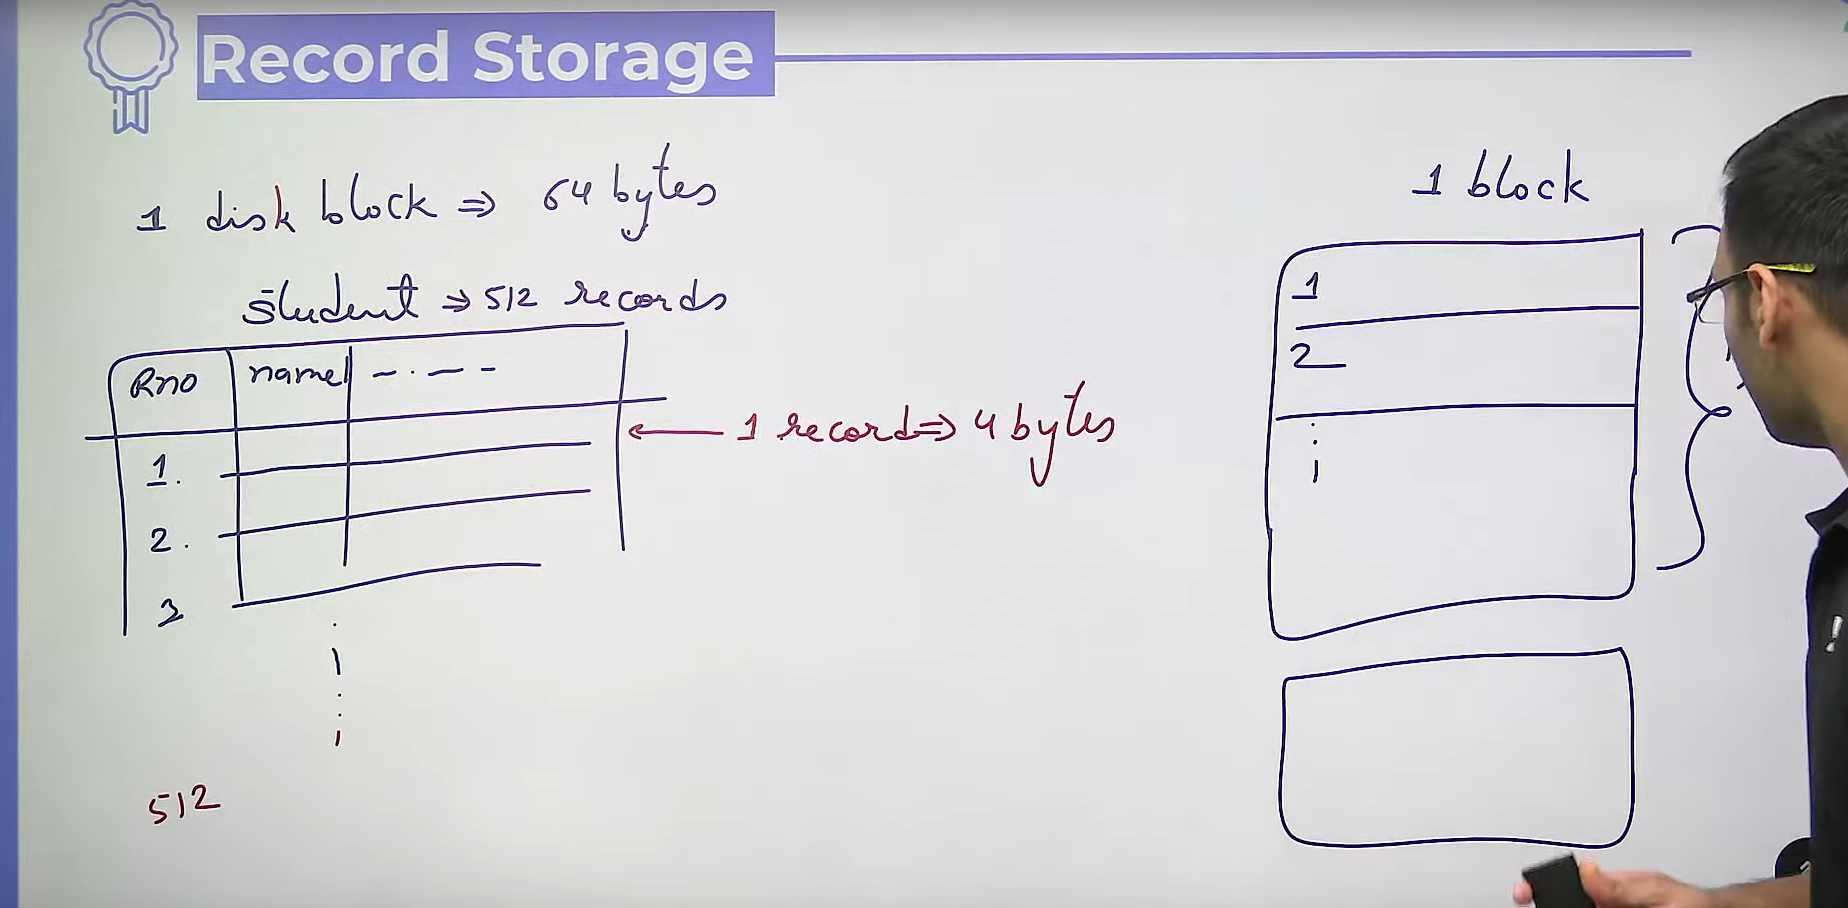 Record Storage
1 disk block ⇒ 64 bytes
student ⇒ 512 records
Rno name - . - -
1 record ⇒ 4 bytes
1.
2.
3
512
1 block
1
2